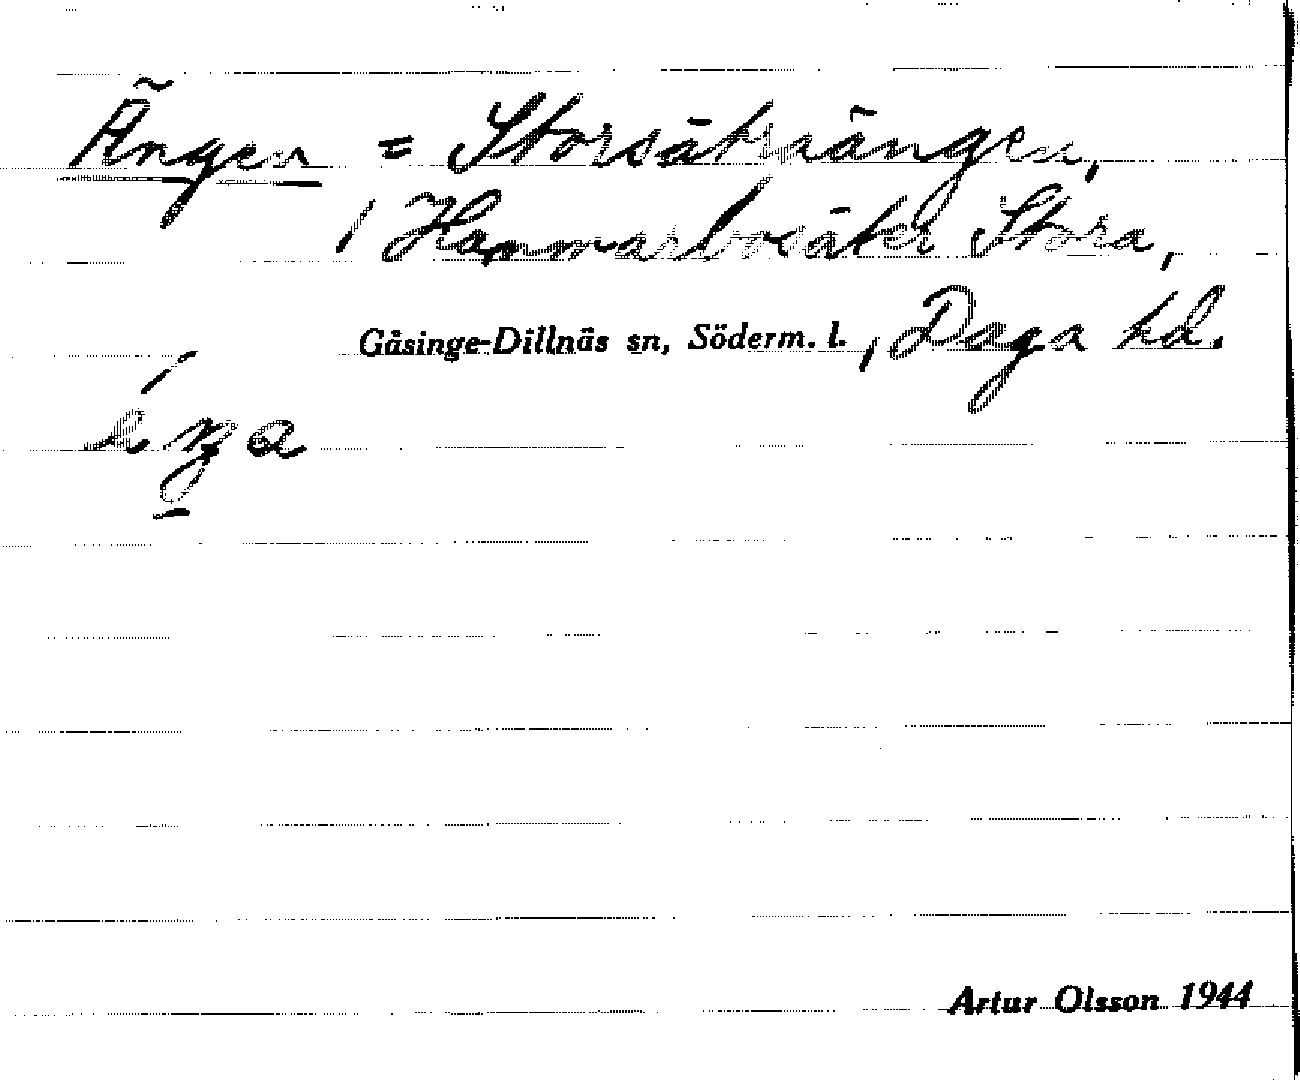 Ängen = Storsätraängen,
/ Hammarbosäter Stora,
Gåsinge-Dillnäs sn, Söderm. l., Daga hd.
Artur Olsson 1944